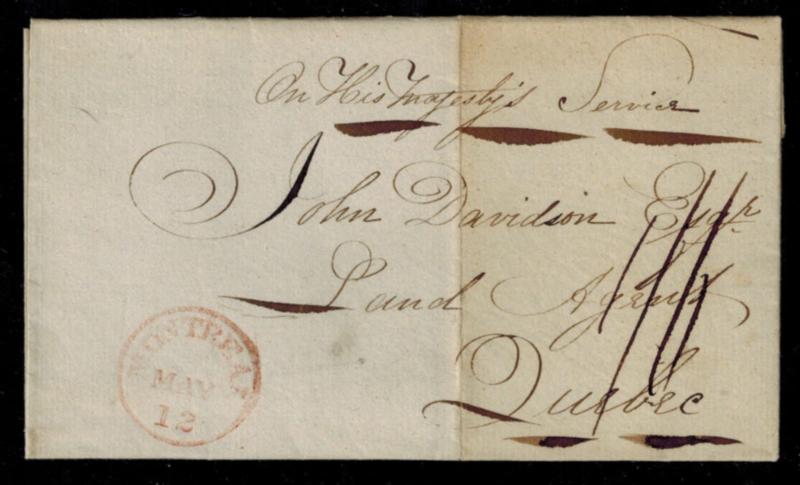 On His Majesty's Service
John Davidson Esqr
Land Agent
Quebec
MONTREAL
MAY
12